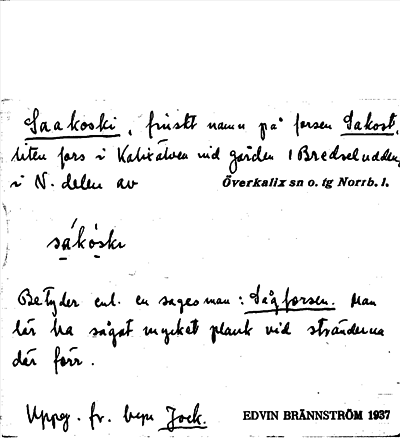 Saakoski, finskt namn på forsen Sakost,
liten fors i Kalixälven vid gården 1 Bredseludden,
i N. delen av Överkalix sn o. tg Norrb. l.
sákóski
Betyder enl. en sagesman: Sågforsen. Man
lär ha sågat mycket plank vid stränderna
där förr.
Uppg. fr. byn Jock. EDVIN BRÄNNSTRÖM 1937